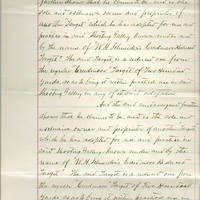 further shows that he claims to be and is the
sole and exclusive owner and proprietor of
one Target which he has adopted for use and
practice in said Shooting Gallery known under and
by the name of "W.H. Schneider's Cardinas Reduced
Target". The said Target is a reduced one from
the regular Creedmoor Target of Two Hundred
yards, so as to bring it within practical use in said
Shooting Gallery, in any of its any adaptation.
And the said undersigned further
shows that he claims to be and is the sole and
exclusive owner and proprietor of another Target
which he has adopted for use and practice in
said Shooting Gallery known under and by the
name of "W.H. Schneider's Creedmoor Reduced
Target." The said Target is a reduced one from
the regular Creedmoor Target of Five Hundred
yards so as to bring it within practical use in